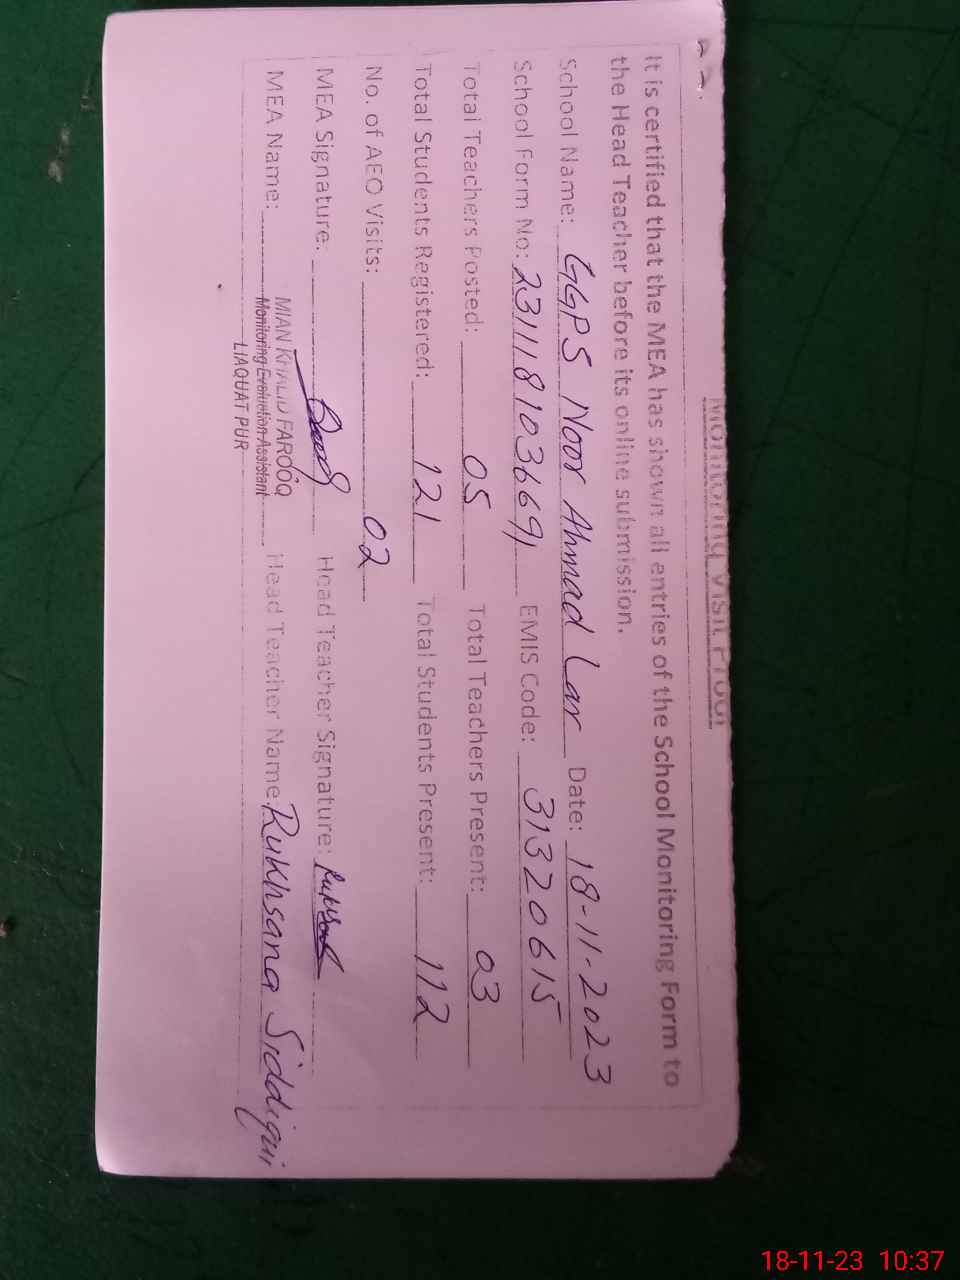 Monitoring Visit Proof
It is certified that the MEA has shown all entries of the School Monitoring Form to
the Head Teacher before its online submission.
School Name: GGPS Noor Ahmad Lar Date: 18-11-2023
School Form No: 23111810366 91 EMIS Code: 31320615
Total Teachers Posted: 05 Total Teachers Present: 03
Total Students Registered: 121 Total Students Present: 112
No. of AEO Visits: 02
MEA Signature: Head Teacher Signature:
MEA Name: MIAN KHALID FAROOQ Head Teacher Name: Rukhsana Siddiqui
Monitoring Evaluation Assistant
LIAQUAT PUR
18-11-23 10:37